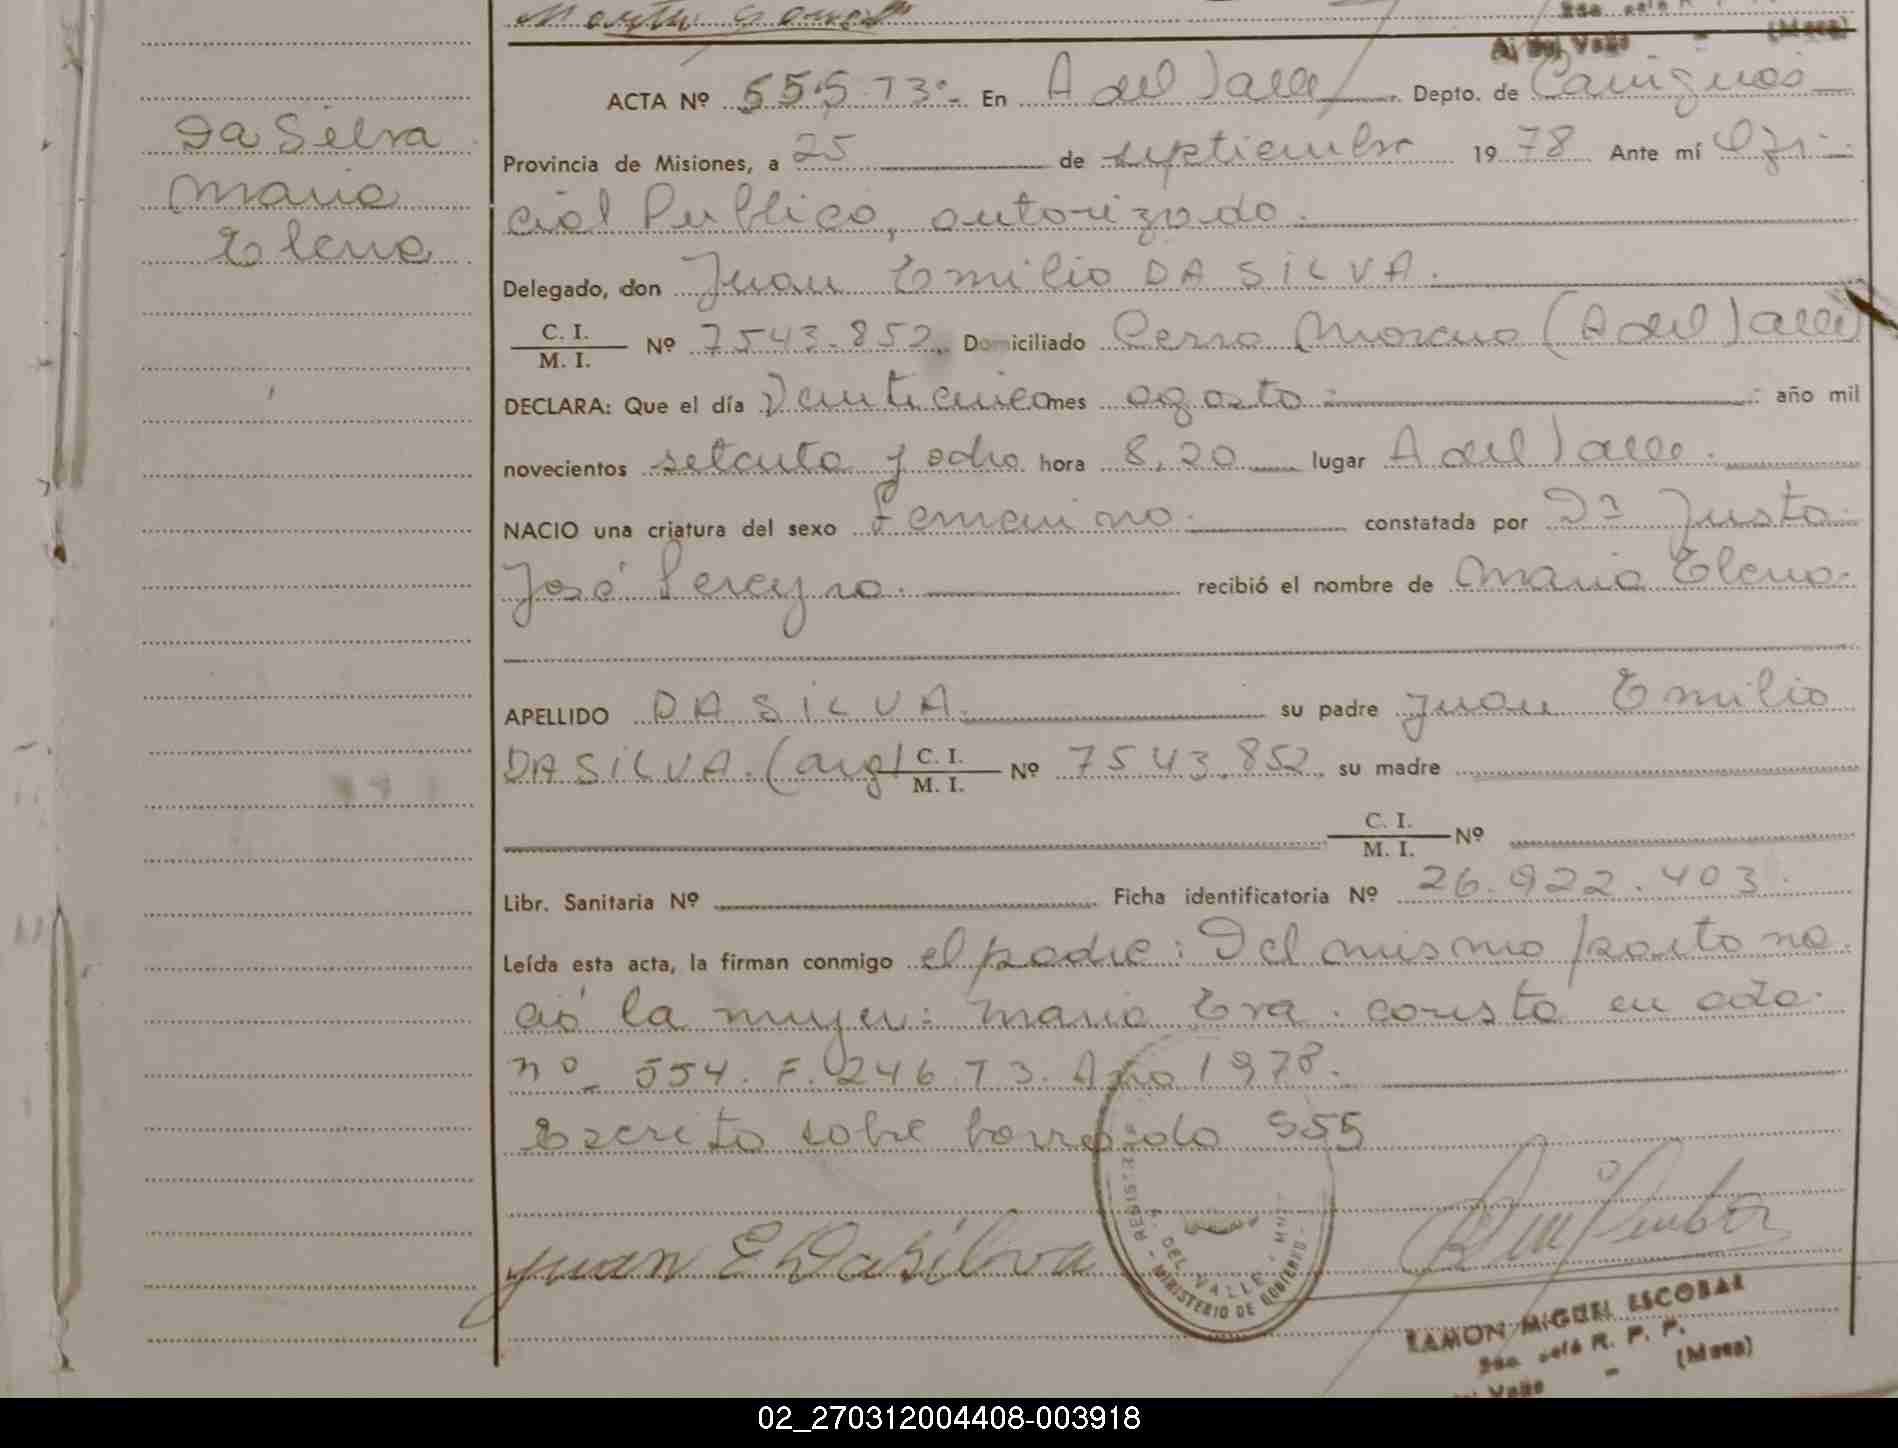 Da Silva
Maria
Elena
ACTA Nº 555 T3º En A del Valle Depto. de Cainguás
Provincia de Misiones, a 25 de septiembre 1978 Ante mí Ofi-
cial Publico, autorizado.
Delegado, don Juan Emilio DA SILVA.
C. I.
M. I. Nº 7543.852 Domiciliado Cerro Moreno (A del Valle)
DECLARA: Que el día Veinticinco mes agosto año mil
novecientos setenta y ocho hora 8,20 lugar A del Valle.
NACIO una criatura del sexo Femenino. constatada por Dr Justo
José Pereyra. recibió el nombre de Maria Elena
APELLIDO DA SILVA. su padre Juan Emilio
DA SILVA. (arg) C. I.
M. I. Nº 7543.852 su madre
C. I.
M. I. Nº
Libr. Sanitaria Nº Ficha identificatoria Nº 26.922.403.
Leída esta acta, la firman conmigo el padre: Del mismo parto na
ció la mujer: Maria Eva. consta en acta
nº 554. F. 246. T3. Año 1978.
Escrito sobre borrado 555
Juan E DaSilva
REGIS. DEL VALLE
MINISTERIO DE GOBIERNO
RAMON MIGUEL ESCOBAR
R. P. P.
Valle - (Mnes)
02_270312004408-003918